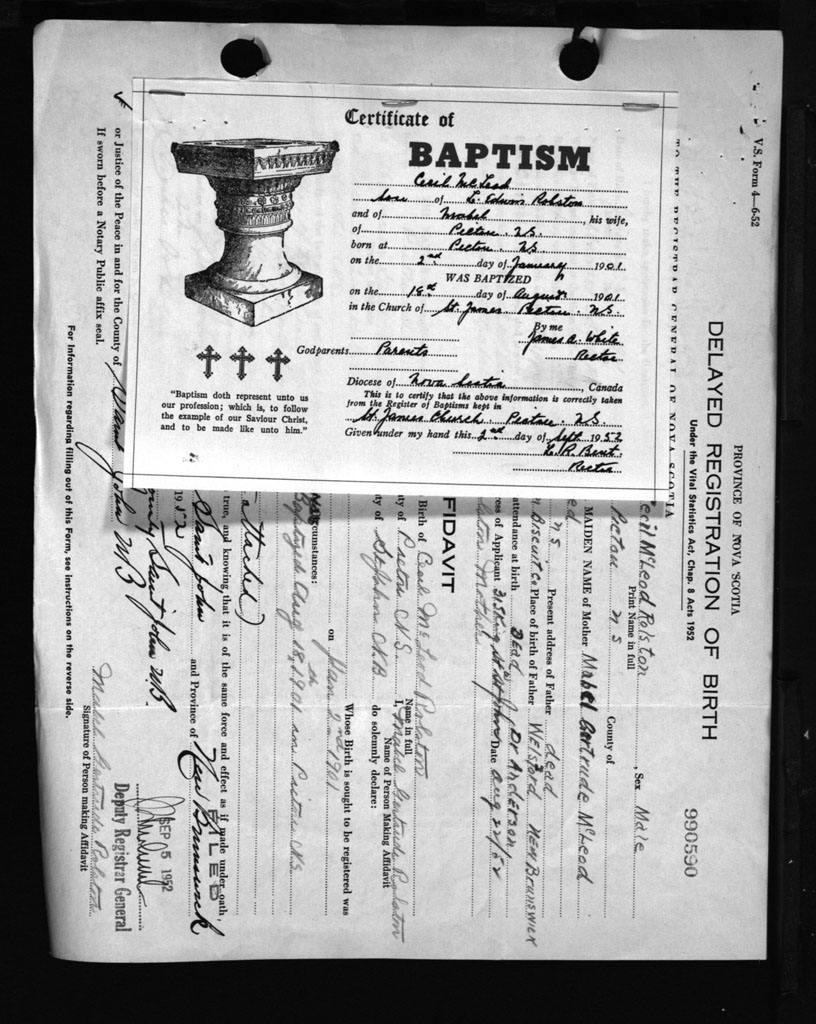 Certificate of
BAPTISM
Cecil McLeod
Son of C. Edwin Rolston
and of Mabel, his wife,
of Pictou N.S.
born at Pictou N.S.
on the 2nd day of January 1901
WAS BAPTIZED
on the 18th day of August 1901
in the Church of St. James Pictou N.S.
By me
James A. White
Rector
Godparents Parents
Diocese of Nova Scotia, Canada
This is to certify that the above information is correctly taken
from the Register of Baptisms kept in
St. James Church Pictou N.S.
Given under my hand this 2nd day of Sept 1952
Rector
"Baptism doth represent unto us
our profession; which is, to follow
the example of our Saviour Christ,
and to be made like unto him."
V.S. Form 4—6-52
PROVINCE OF NOVA SCOTIA
DELAYED REGISTRATION OF BIRTH
990590
Under the Vital Statistics Act, Chap. 8 Acts 1952
TO THE REGISTRAR GENERAL OF NOVA SCOTIA
Cecil McLeod Rolston, Sex Male
Print Name in full
Pictou N S County of
MAIDEN NAME of Mother Mabel Gertrude McLeod
N S Present address of Father dead
Biscuit Co Place of birth of Father Welsford New Brunswick
attendance at birth Dead Dr Anderson
ess of Applicant 315 King St W St John Date Aug 22/52
Mother
FIDAVIT
Birth of Cecil McLeod Rolston
Name in full
ty of Pictou N.S. I, Mabel Gertrude Rolston
Name of Person Making Affidavit
ty of St John N.B do solemnly declare:
Whose Birth is sought to be registered was
on Jan 2nd 1901
circumstances:
Baptized Aug 18th, 1901 in Pictou N.S.
attached)
true, and knowing that it is of the same force and effect as if made under oath,
FILED
Saint John and Province of New Brunswick
1952
ounty Saint John N.B.
SEP 5 1952
Deputy Registrar General
or Justice of the Peace in and for the County of Saint John NB
If sworn before a Notary Public affix seal.
Mabel Gertrude Rolston
Signature of Person making Affidavit
For Information regarding filling out of this Form, see instructions on the reverse side.